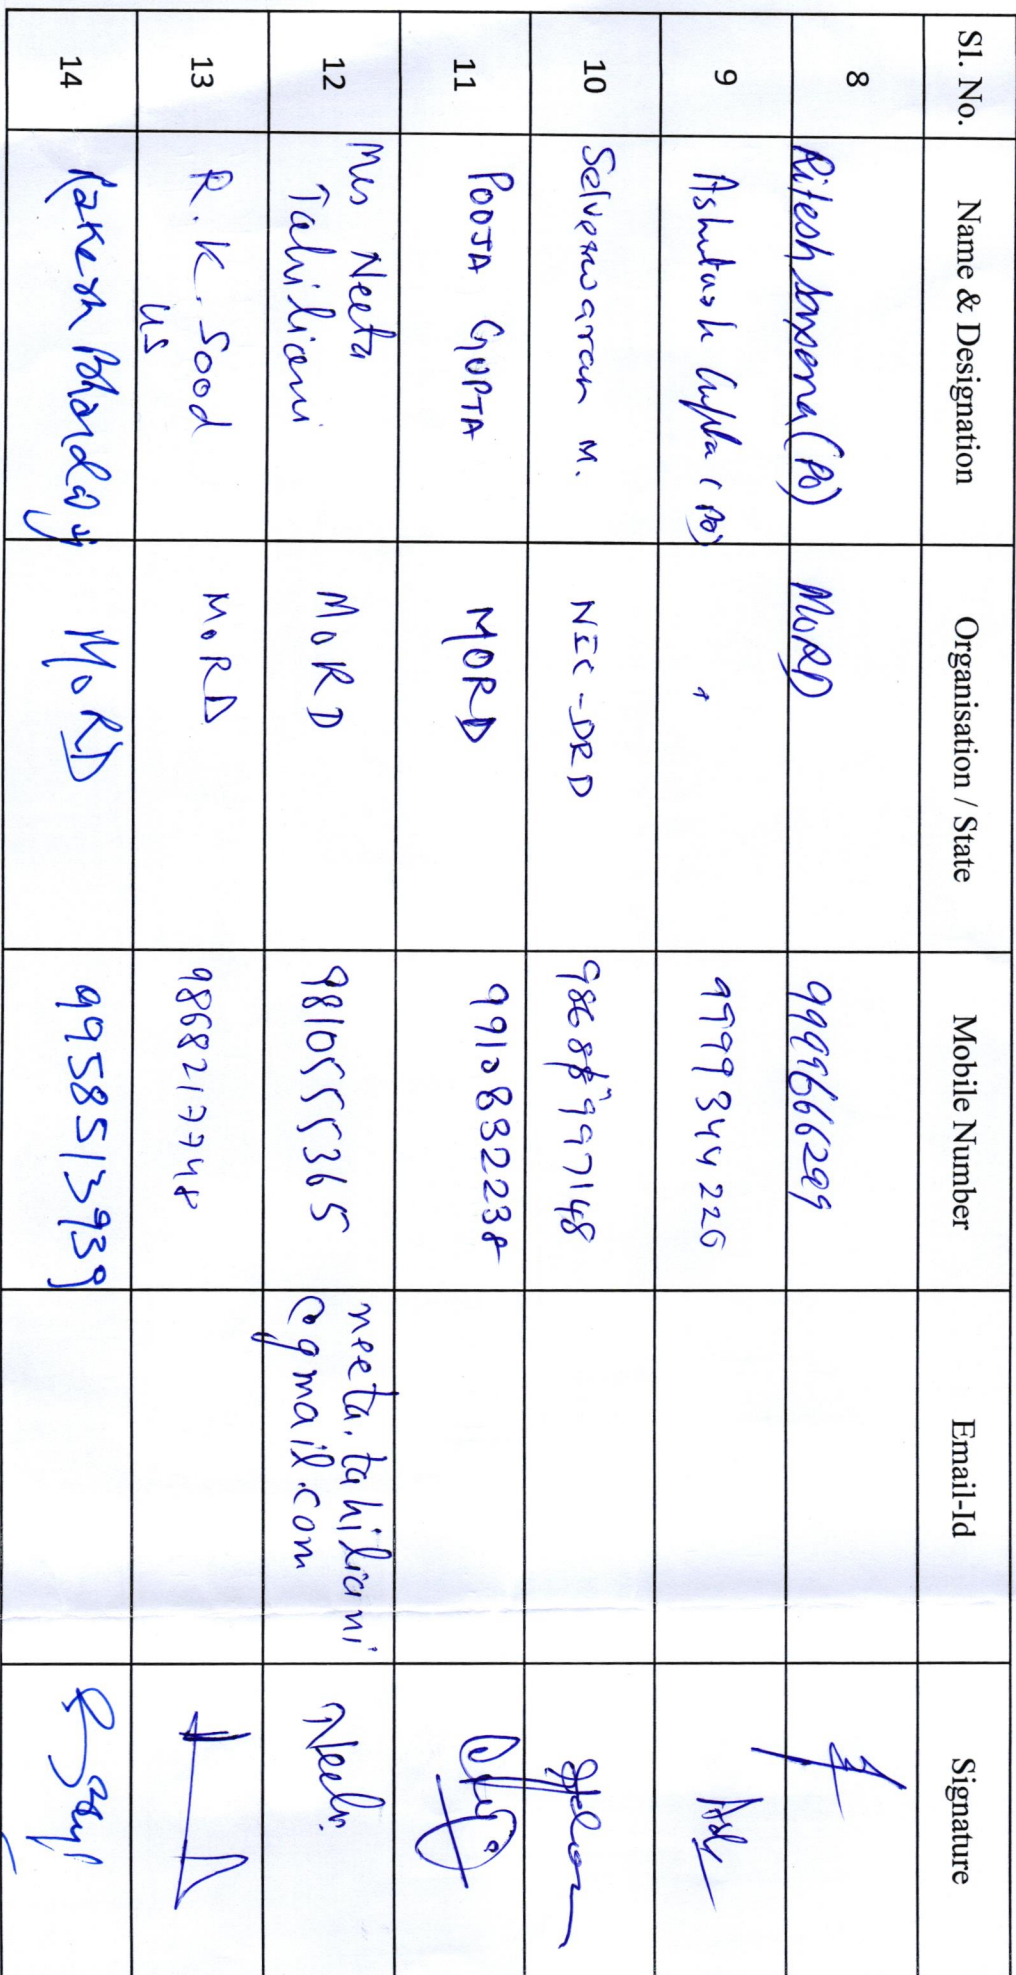 Sl. No. Name & Designation Organisation / State Mobile Number Email-Id Signature
8 Ritesh Saxena (PO) MoRD 9999666299
9 Ashutosh Gupta (PO) " 9999344226
10 Selveswaran M. NIC-DRD
11 POOJA GUPTA MORD 9910832238
12 Mrs Neeta MoRD 9810555365 neeta.tahiliani
Tahiliani @gmail.com Neeta
13 R.K. Sood MoRD 9868217748
US
14 Rakesh Bhardwaj MoRD 9958513939